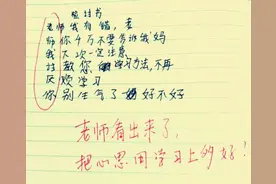 检讨书
老师我有错,老
师你千万不要告诉我妈
我下次一定注意,
请教您学习方法,不再
厌烦学习
你别生气了好不好
老师看出来了,
把心思用学习上多好!